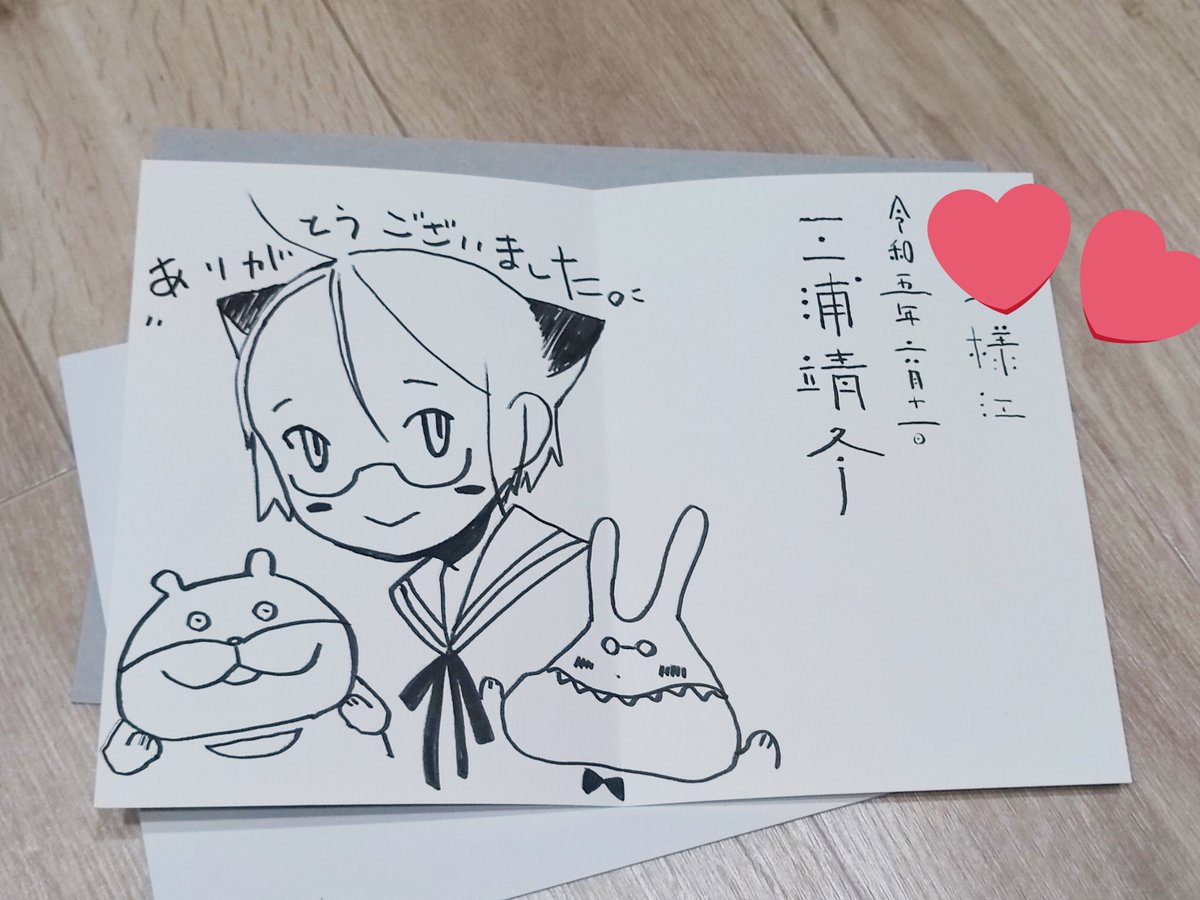 ありがとうございました。
様江
令和五年六月十一日
三浦靖冬